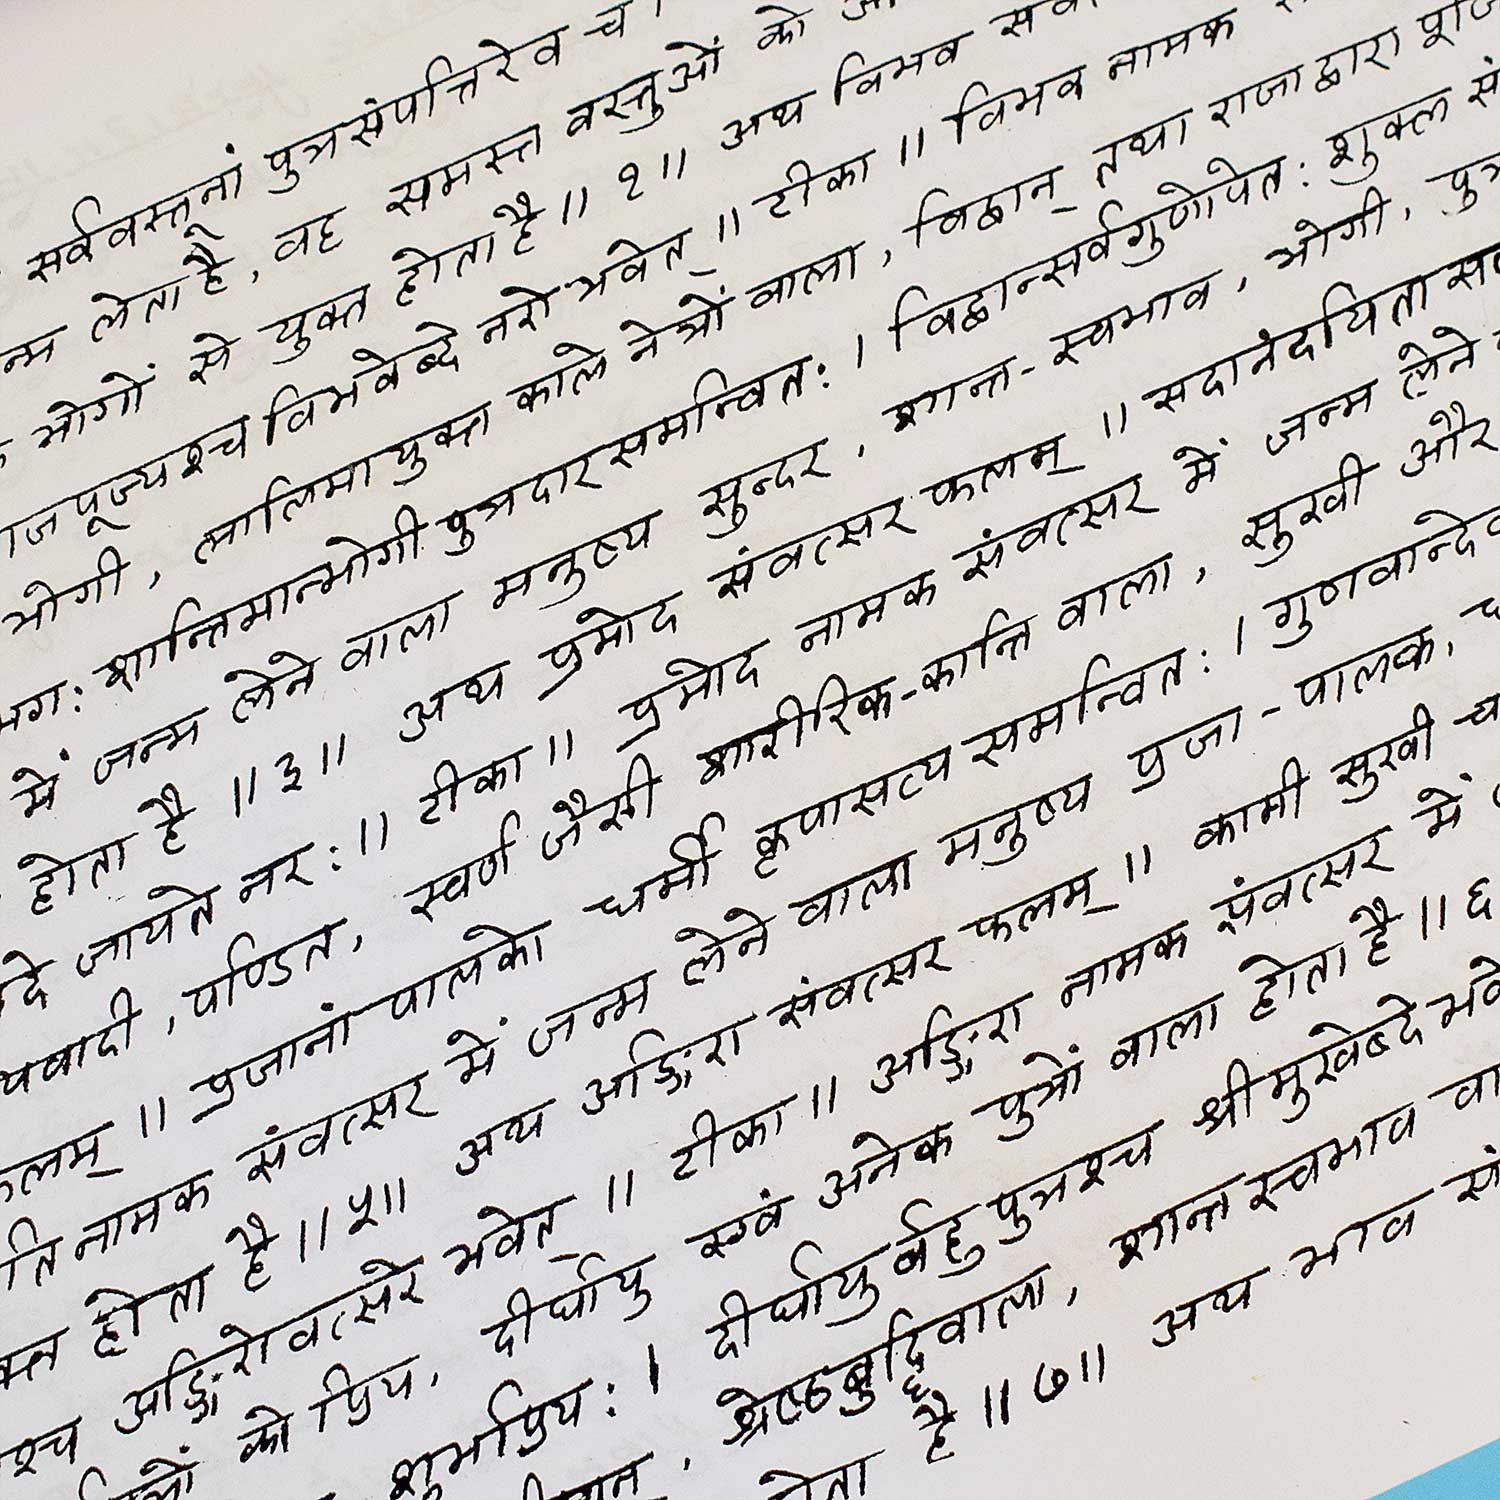 सर्ववस्तूनां पुत्रसंपत्तिरेव च ।
न्म लेता है, वह समस्त वस्तुओं को
भोगों से युक्त होता है ॥ १ ॥ अथ विभव
राजपूज्यश्च विभवेब्दे नरो भवेत् ॥ टीका ॥ विभव नामक
भोगी, लालिमायुक्त काले नेत्रों वाला, विद्वान् तथा राजा द्वारा
भग: शान्तिमान्भोगी पुत्रदारसमन्वित: । विद्वान्सर्वगुणोपेत: शुक्ल
में जन्म लेने वाला मनुष्य सुन्दर, शान्त-स्वभाव, भोगी,
होता है ॥ ३ ॥ अथ प्रमोद संवत्सर फलम् ॥ सदानंदयिता
ब्दे जायते नर: ॥ टीका ॥ प्रमोद नामक संवत्सर में जन्म लेने
यवादी, पण्डित, स्वर्ण जैसी शारीरिक-कान्ति वाला, सुखी और
फलम् ॥ प्रजानां पालको धर्मी कृपासत्यसमन्वित: । गुणवान्देव
ति नामक संवत्सर में जन्म लेने वाला मनुष्य प्रजा-पालक,
क्त होता है ॥ ५ ॥ अथ अङ्गिरा संवत्सर फलम् ॥ कामी सुखी
श्च अङ्गिरोवत्सरे भवेत् ॥ टीका ॥ अङ्गिरा नामक संवत्सर में
को प्रिय, दीर्घायु एवं अनेक पुत्रों वाला होता है ॥ ६
शुर्भाप्रिय: । दीर्घायुर्बहुपुत्रश्च श्रीमुखेब्दे भवे
श्रेष्ठबुद्धिवाला, शान्त स्वभाव
होता है ॥ ७ ॥ अथ भाव